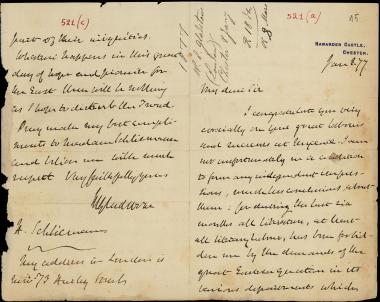 521 (a)
A5
HAWARDEN CASTLE,
CHESTER.
Jan 8. 77
My dear Sir
I congratulate you very
cordially on your great labours
and successes at Mycenae. I am
not unfortunately in a condition
to form any independent
much less conclusions about
them: for during the last six
months all literature, at least
all literary labour, has been forbid-
den me by the demands of the
great Eastern Question in its
various departments which
521 (c)
part of their iniquities.
Whatever happens in this great
day of hope and
the East there will be nothing
as I hope to disturb the Troad.
Pray make my best compli-
ments to Madame Schliemann
and believe me with much
respect Very faithfully yours
WEGladstone
H. Schliemann
My address in London is
now 73 Harley Street